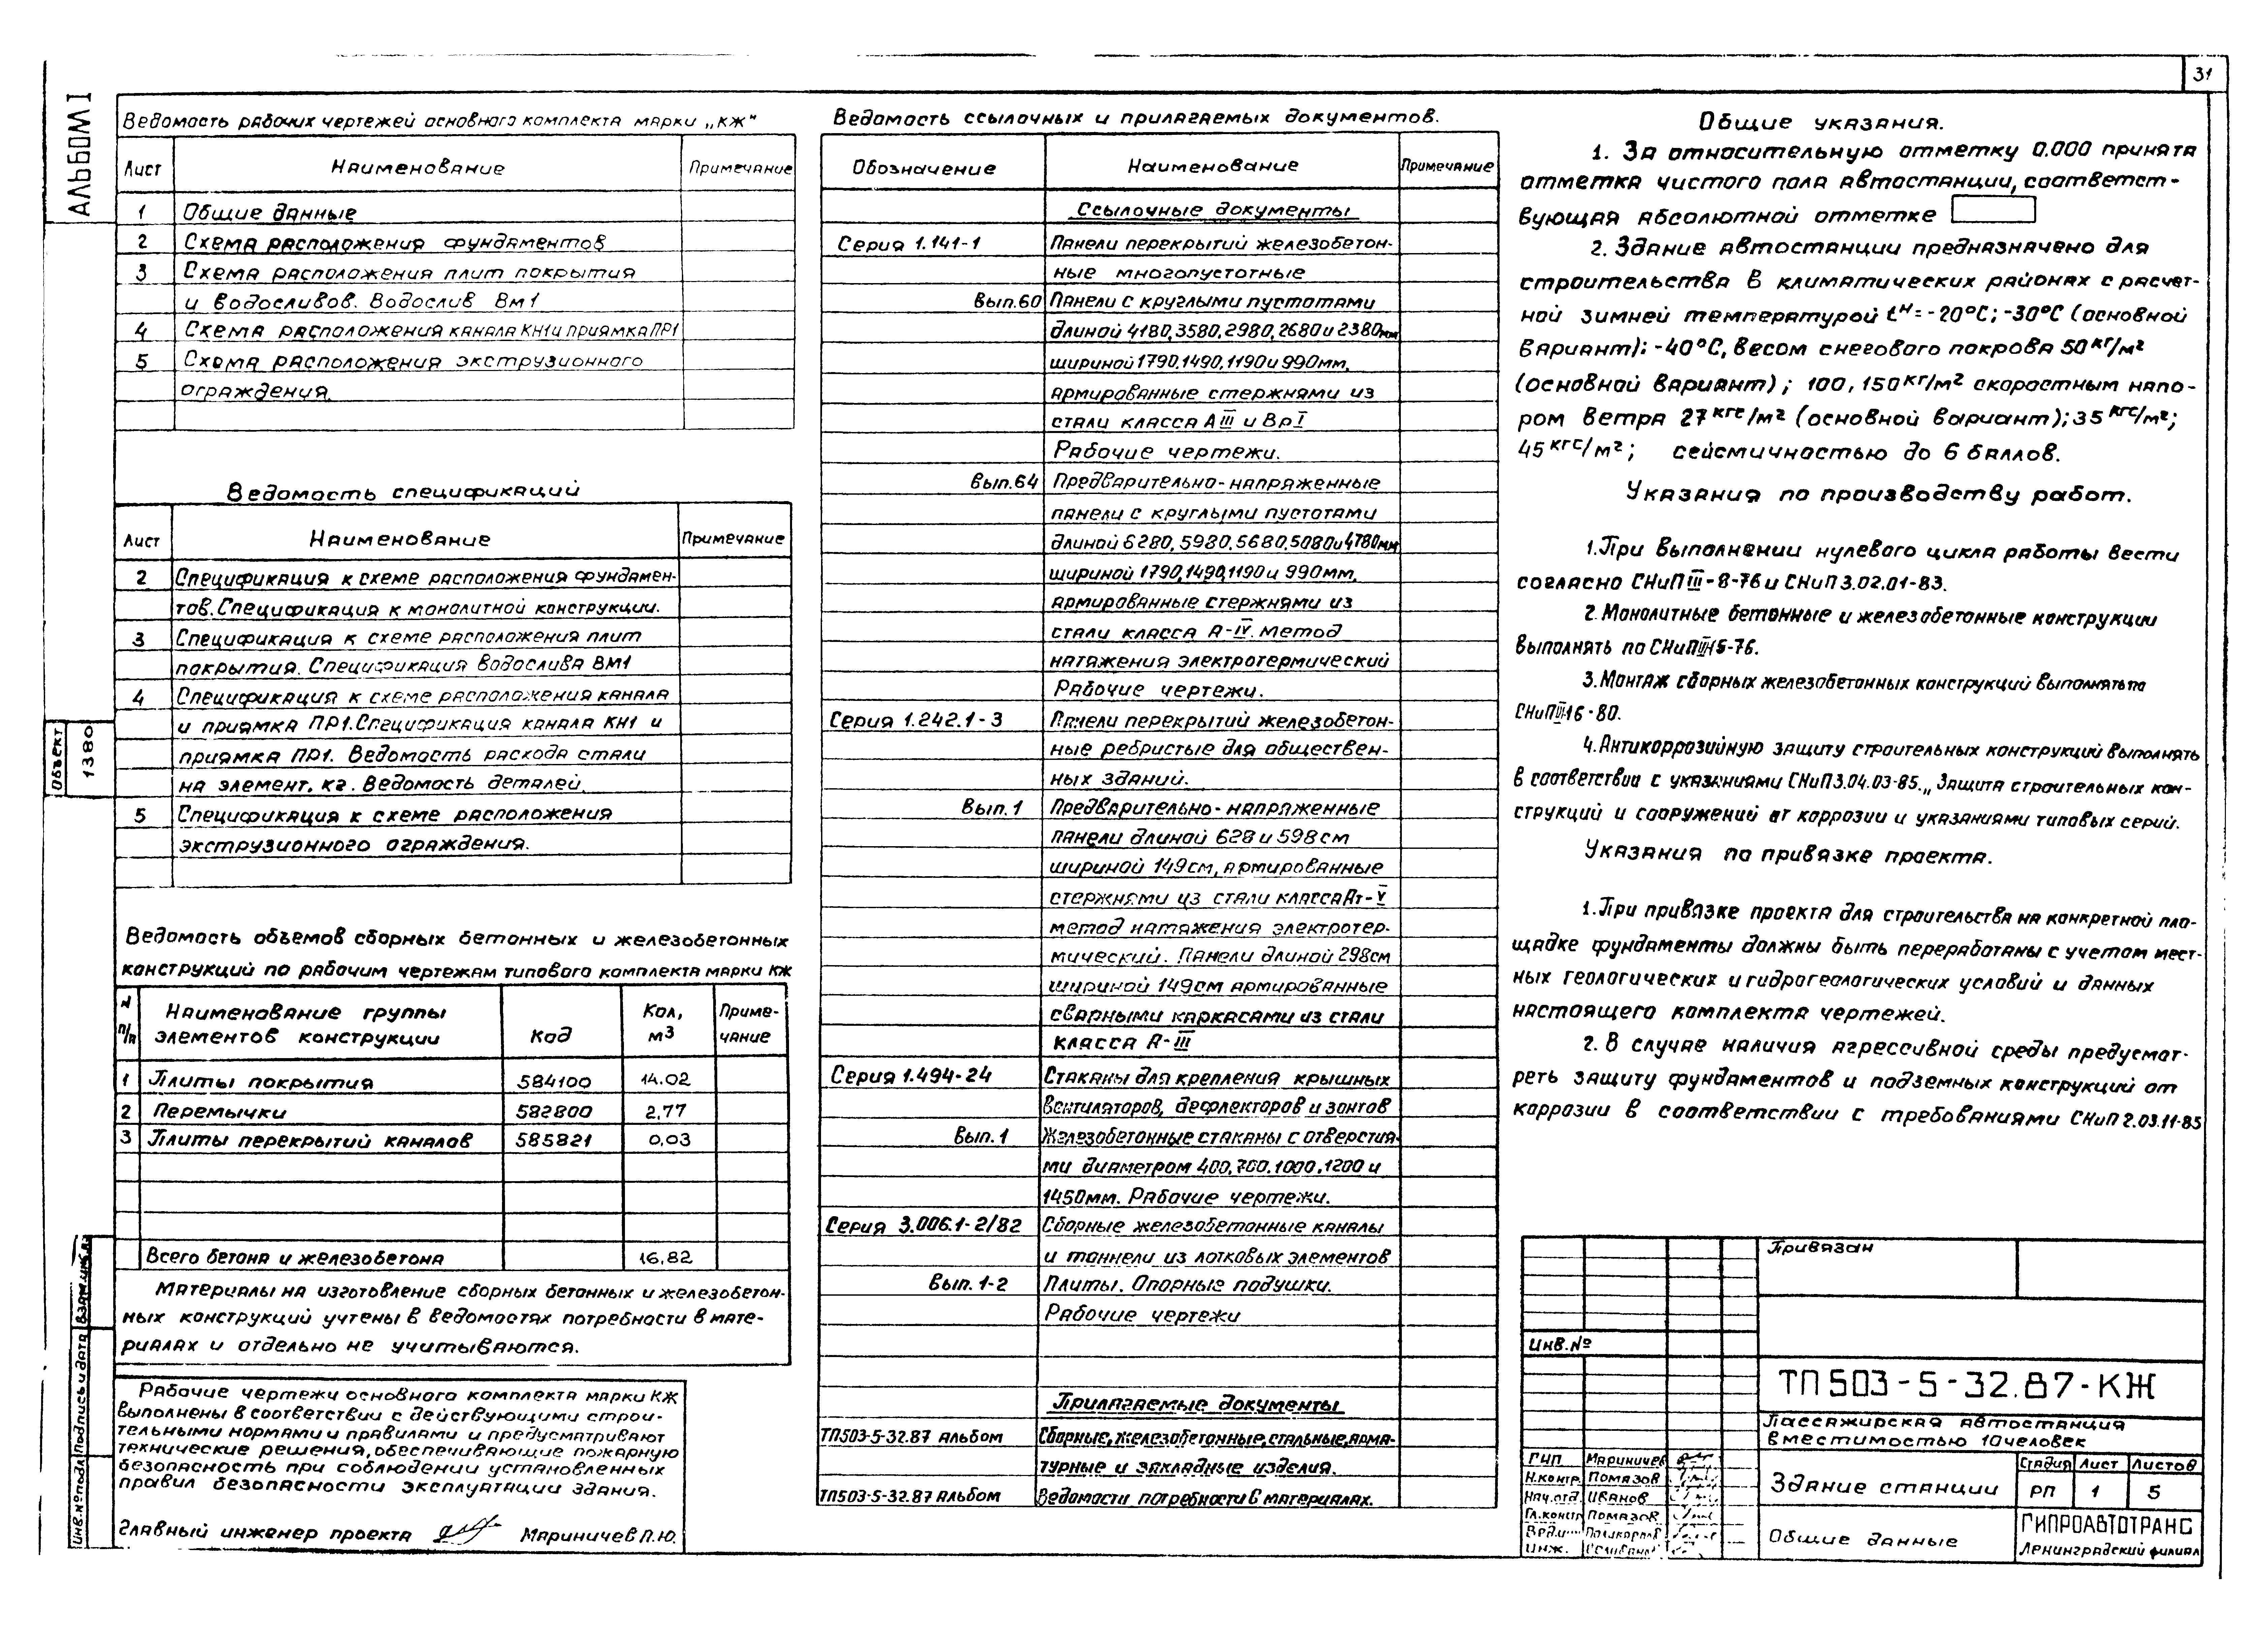 31
АЛЬБОМ I
Ведомость рабочих чертежей основного комплекта марки „КЖ"
Лист Наименование Примечание
1 Общие данные
2 Схема расположения фундаментов
3 Схема расположения плит покрытия
и водосливов. Водослив Вм1
4 Схема расположения канала КН1 и приямка ПР1
5 Схема расположения экструзионного
ограждения.
Ведомость спецификаций
Лист Наименование Примечание
2 Спецификация к схеме расположения фундамен-
тов. Спецификация к монолитной конструкции.
3 Спецификация к схеме расположения плит
покрытия. Спецификация водослива ВМ1
4 Спецификация к схеме расположения канала
и приямка ПР1. Спецификация канала КН1 и
приямка ПР1. Ведомость расхода стали
на элемент, кг. Ведомость деталей.
5 Спецификация к схеме расположения
экструзионного ограждения.
Объект 1380
Ведомость объемов сборных бетонных и железобетонных
конструкций по рабочим чертежам типового комплекта марки КЖ
N п/п Наименование группы элементов конструкции Код Кол, м3 Приме-чание
1 Плиты покрытия 584100 14.02
2 Перемычки 582800 2,77
3 Плиты перекрытий каналов 585821 0,03
Всего бетона и железобетона 16,82
Материалы на изготовление сборных бетонных и железобетон-
ных конструкций учтены в ведомостях потребности в мате-
риалах и отдельно не учитываются.
Рабочие чертежи основного комплекта марки КЖ
выполнены в соответствии с действующими строи-
тельными нормами и правилами и предусматривают
технические решения, обеспечивающие пожарную
безопасность при соблюдении установленных
правил безопасности эксплуатации здания.
Главный инженер проекта Мариничев П.Ю.
Инв.№ подл Подпись и дата Взам.инв.№
Ведомость ссылочных и прилагаемых документов.
Обозначение Наименование Примечание
Ссылочные документы
Серия 1.141-1 Панели перекрытий железобетон-
ные многопустотные
Вып.60 Панели с круглыми пустотами
длиной 4180, 3580, 2980, 2680 и 2380мм
шириной 1790, 1490, 1190 и 990мм,
армированные стержнями из
стали класса А III и Вр I
Рабочие чертежи.
Вып.64 Предварительно-напряженные
панели с круглыми пустотами
длиной 6280, 5980, 5680, 5080 и 4780мм
шириной 1790, 1490, 1190 и 990мм,
армированные стержнями из
стали класса А-IV. Метод
натяжения электротермический
Рабочие чертежи.
Серия 1.242.1-3 Панели перекрытий железобетон-
ные ребристые для обществен-
ных зданий.
Вып.1 Предварительно-напряженные
панели длиной 628 и 598см
шириной 149см, армированные
стержнями из стали класса Ат-V
метод натяжения электротер-
мический. Панели длиной 298см
шириной 149см армированные
сварными каркасами из стали
класса А-III
Серия 1.494-24 Стаканы для крепления крышных
вентиляторов, дефлекторов и зонтов
Вып.1 Железобетонные стаканы с отверстия-
ми диаметром 400, 700, 1000, 1200 и
1450мм. Рабочие чертежи.
Серия 3.006.1-2/82 Сборные железобетонные каналы
и тоннели из лотковых элементов
Вып. 1-2 Плиты. Опорные подушки.
Рабочие чертежи
Прилагаемые документы
ТП503-5-32.87 Альбом Сборные, железобетонные, стальные, арма-
турные и закладные изделия.
ТП503-5-32.87 Альбом Ведомости потребности в материалах.
Общие указания.
1. За относительную отметку 0.000 принята
отметка чистого пола автостанции, соответст-
вующая абсолютной отметке
2. Здание автостанции предназначено для
строительства в климатических районах с расчет-
ной зимней температурой tн=-20°С; -30°С (основной
вариант): -40°С, весом снегового покрова 50 кг/м2
(основной вариант); 100, 150 кг/м2 скоростным напо-
ром ветра 27 кгс/м2 (основной вариант); 35 кгс/м2;
45 кгс/м2; сейсмичностью до 6 баллов.
Указания по производству работ.
1. При выполнении нулевого цикла работы вести
согласно СНиП III-8-76 и СНиП 3.02.01-83.
2. Монолитные бетонные и железобетонные конструкции
выполнять по СНиП III-15-76.
3. Монтаж сборных железобетонных конструкций выполнять по
СНиП III-16-80.
4. Антикоррозийную защиту строительных конструкций выполнять
в соответствии с указаниями СНиП 3.04.03-85. „Защита строительных кон-
струкций и сооружений от коррозии и указаниями типовых серий.
Указания по привязке проекта.
1. При привязке проекта для строительства на конкретной пло-
щадке фундаменты должны быть переработаны с учетом мест-
ных геологических и гидрогеологических условий и данных
настоящего комплекта чертежей.
2. В случае наличия агрессивной среды предусмат-
реть защиту фундаментов и подземных конструкций от
коррозии в соответствии с требованиями СНиП 2.03.11-85
Привязан
Инв.№
ТП503-5-32.87-КЖ
Пассажирская автостанция
вместимостью 10 человек
ГИП Мариничев
Н.контр. Помазов
Нач.отд. Иванов
Гл.констр Помазов
Вед.и
Инж.
Здание станции
Стадия Лист Листов
РП 1 5
Общие данные
ГИПРОАВТОТРАНС
Ленинградский филиал